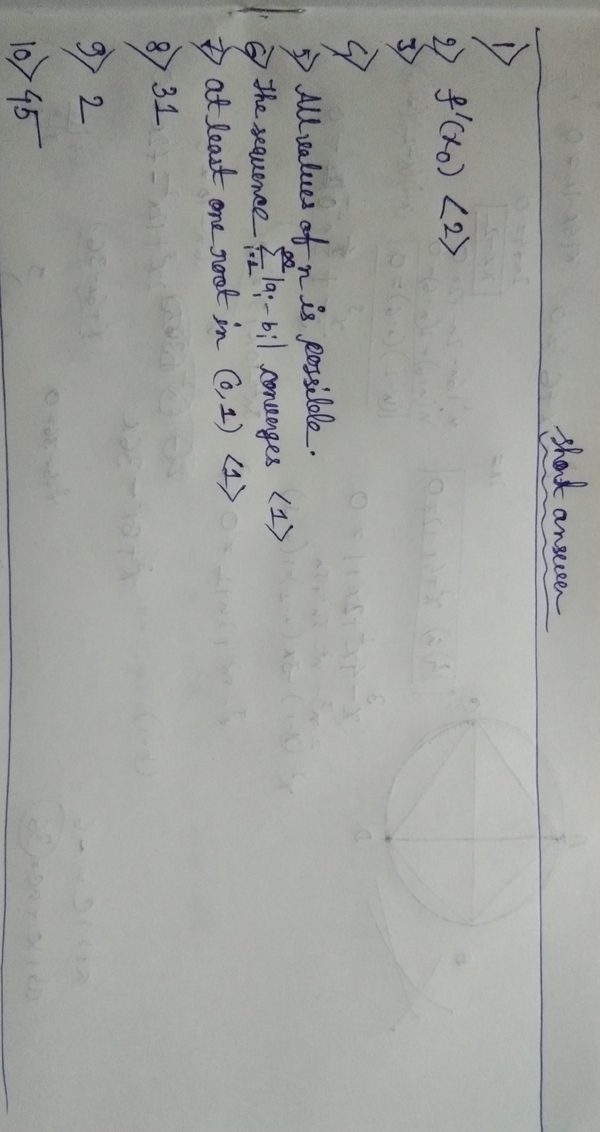 short answer
1>
2> f'(x₀) <2>
3>
4>
5> All values of n is possible.
6> The sequence ∑_{i=1}^{∞} |a_i - b_i| converges <1>
7> at least one root in (0,1) <1>
8> 31
9> 2
10> 45